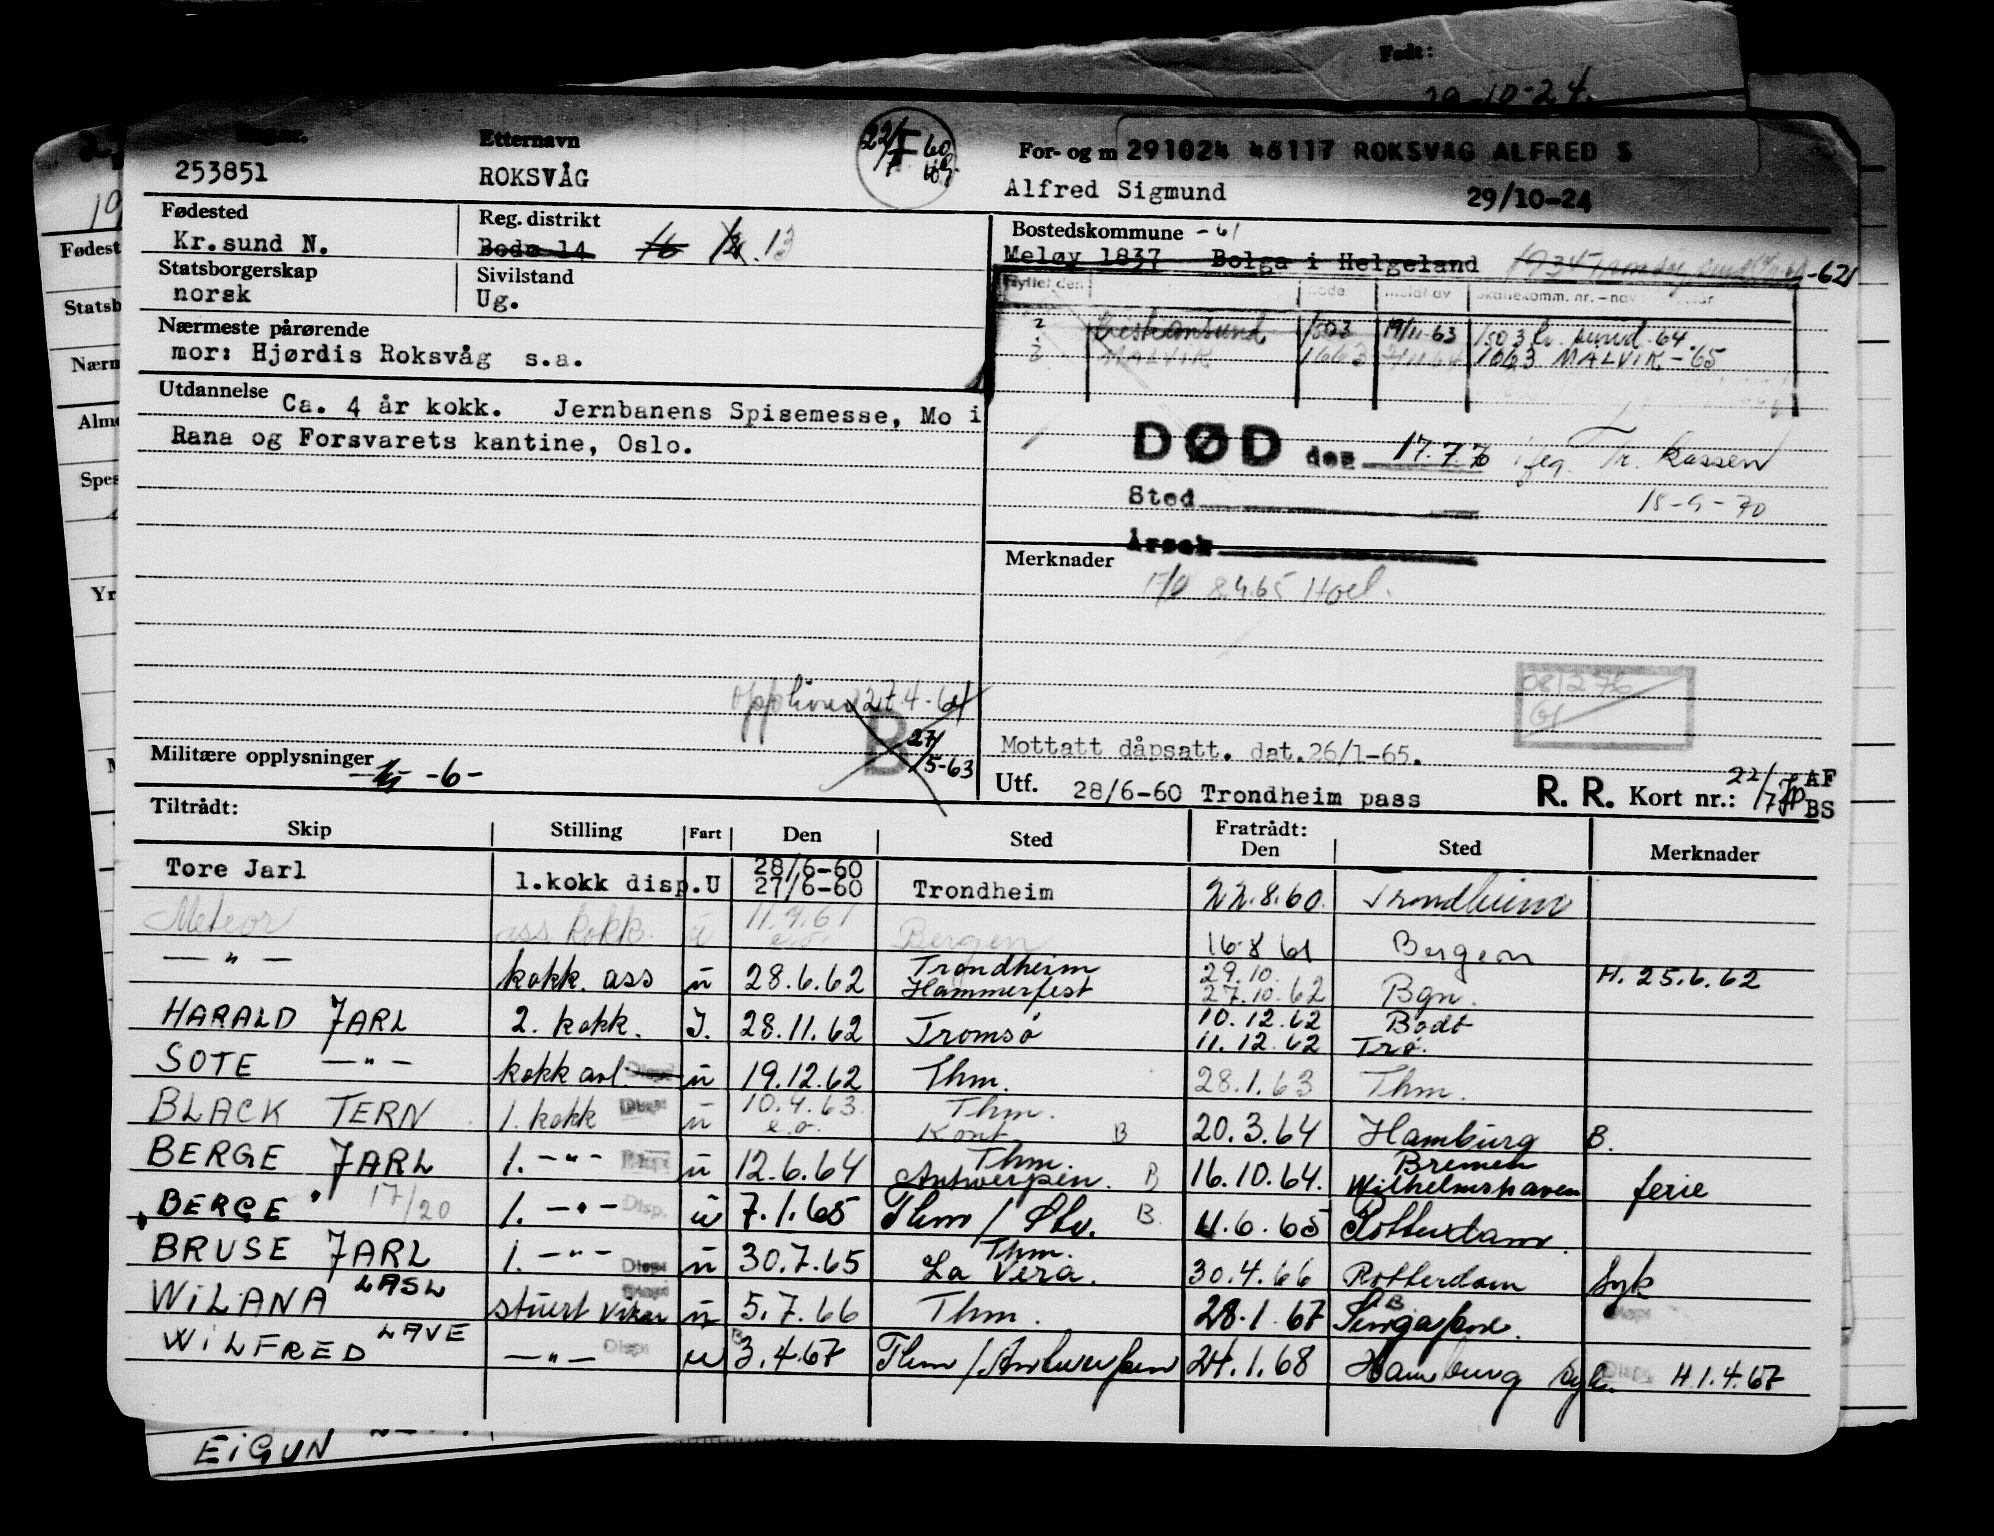 Født:
29-10-24.
Etternavn
For- og m 291024 46117 ROKSVÅG ALFRED S
253851 ROKSVÅG Alfred Sigmund 29/10-24
Fødested Reg. distrikt Bostedskommune -61
Kr.sund N. Bodø 14 13 Meløy 1837 Bolga i Helgeland -62
Statsborgerskap Sivilstand
norsk Ug.
Flyttet den Kode Meldt av
Kristiansund 1503 19/11-63 1503 Kr. sund -64
MALVIK 1663 1663 MALVIK -65
Nærmeste pårørende
mor: Hjørdis Roksvåg s.a.
Utdannelse Ca. 4 år kokk. Jernbanens Spisemesse, Mo i
Rana og Forsvarets kantine, Oslo.
DØD den 17.7.70 Tr. kassen
Sted 18-9-70
Årsak
Merknader
8.4.65 Hoel.
Opphevet 27.4-64
B 27/5-63
Mottatt dåpsatt. dat.26/1-65.
Militære opplysninger -6-
Utf. 28/6-60 Trondheim pass R. R. Kort nr.: AF
BS
Tiltrådt: Fratrådt:
Skip Stilling Fart Den Sted Den Sted Merknader
Tore Jarl 1.kokk disp. U 28/6-60 27/6-60 Trondheim 22.8.60. Trondheim
Meteor ass kokk. u 11.4.61 e.o. Bergen 16.8.61 Bergen
— " — kokk. ass u 28.6.62 Trondheim Hammerfest 29.10. 27.10.62 Bgn. H. 25.6.62
HARALD JARL 2. kokk. I. 28.11.62 Tromsø 10.12.62 11.12.62 Bodø Trø.
SOTE — " — kokk avl. Disp u 19.12.62 Thm. 28.1.63 Thm.
BLACK TERN 1. kokk Disp u 10.4.63. e.o. Thm. Kont B 20.3.64 Hamburg B.
BERGE JARL 1. — " — Disp u 12.6.64 Thm. Antwerpen. B 16.10.64. Bremen Wilhelmshaven ferie
BERGE " 17/20 1. — " — Disp. u 7.1.65 Thm / B. 4.6.65 Rotterdam.
BRUSE JARL 1. — " — Disp u 30.7.65 Thm. La Vera. 30.4.66 Rotterdam syk
WILANA LASL stuert vikar Disp u 5.7.66 Thm. 28.1.67 B Singapore. Disp
WILFRED LAVE — " — Disp u B 3.4.67 Thm / Antwerpen 24.1.68 Hamburg syk. Disp H.1.4.67
EIGUN